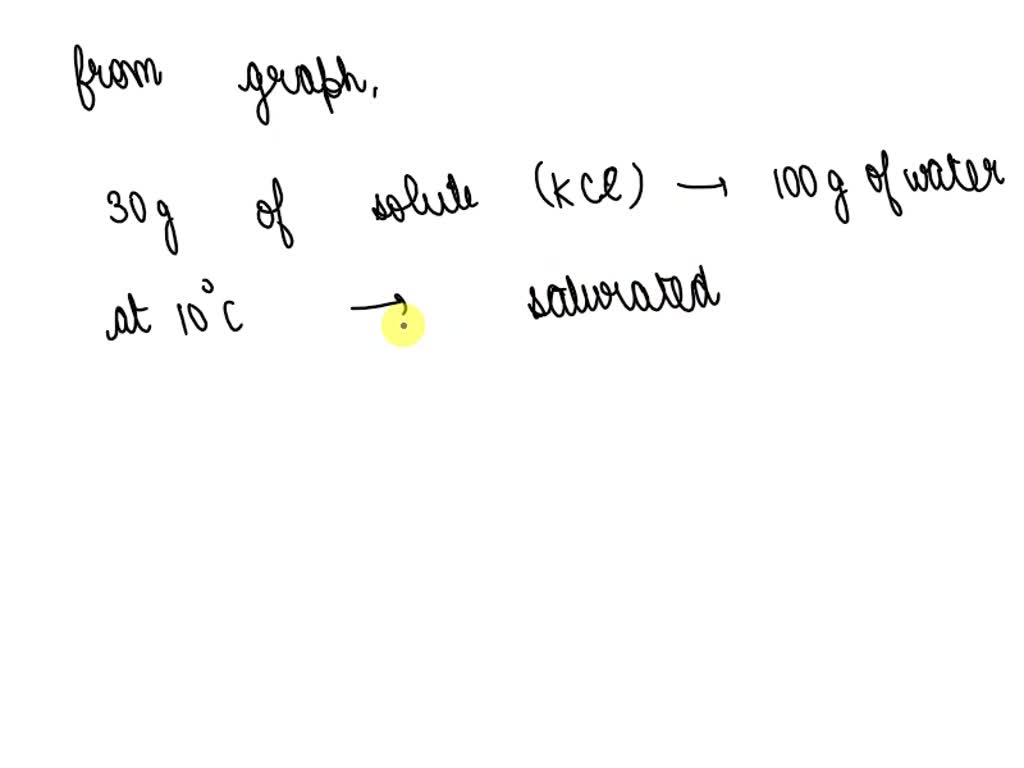 from graph,
30g of solute (KCl) → 100g of water
at 10°C → saturated